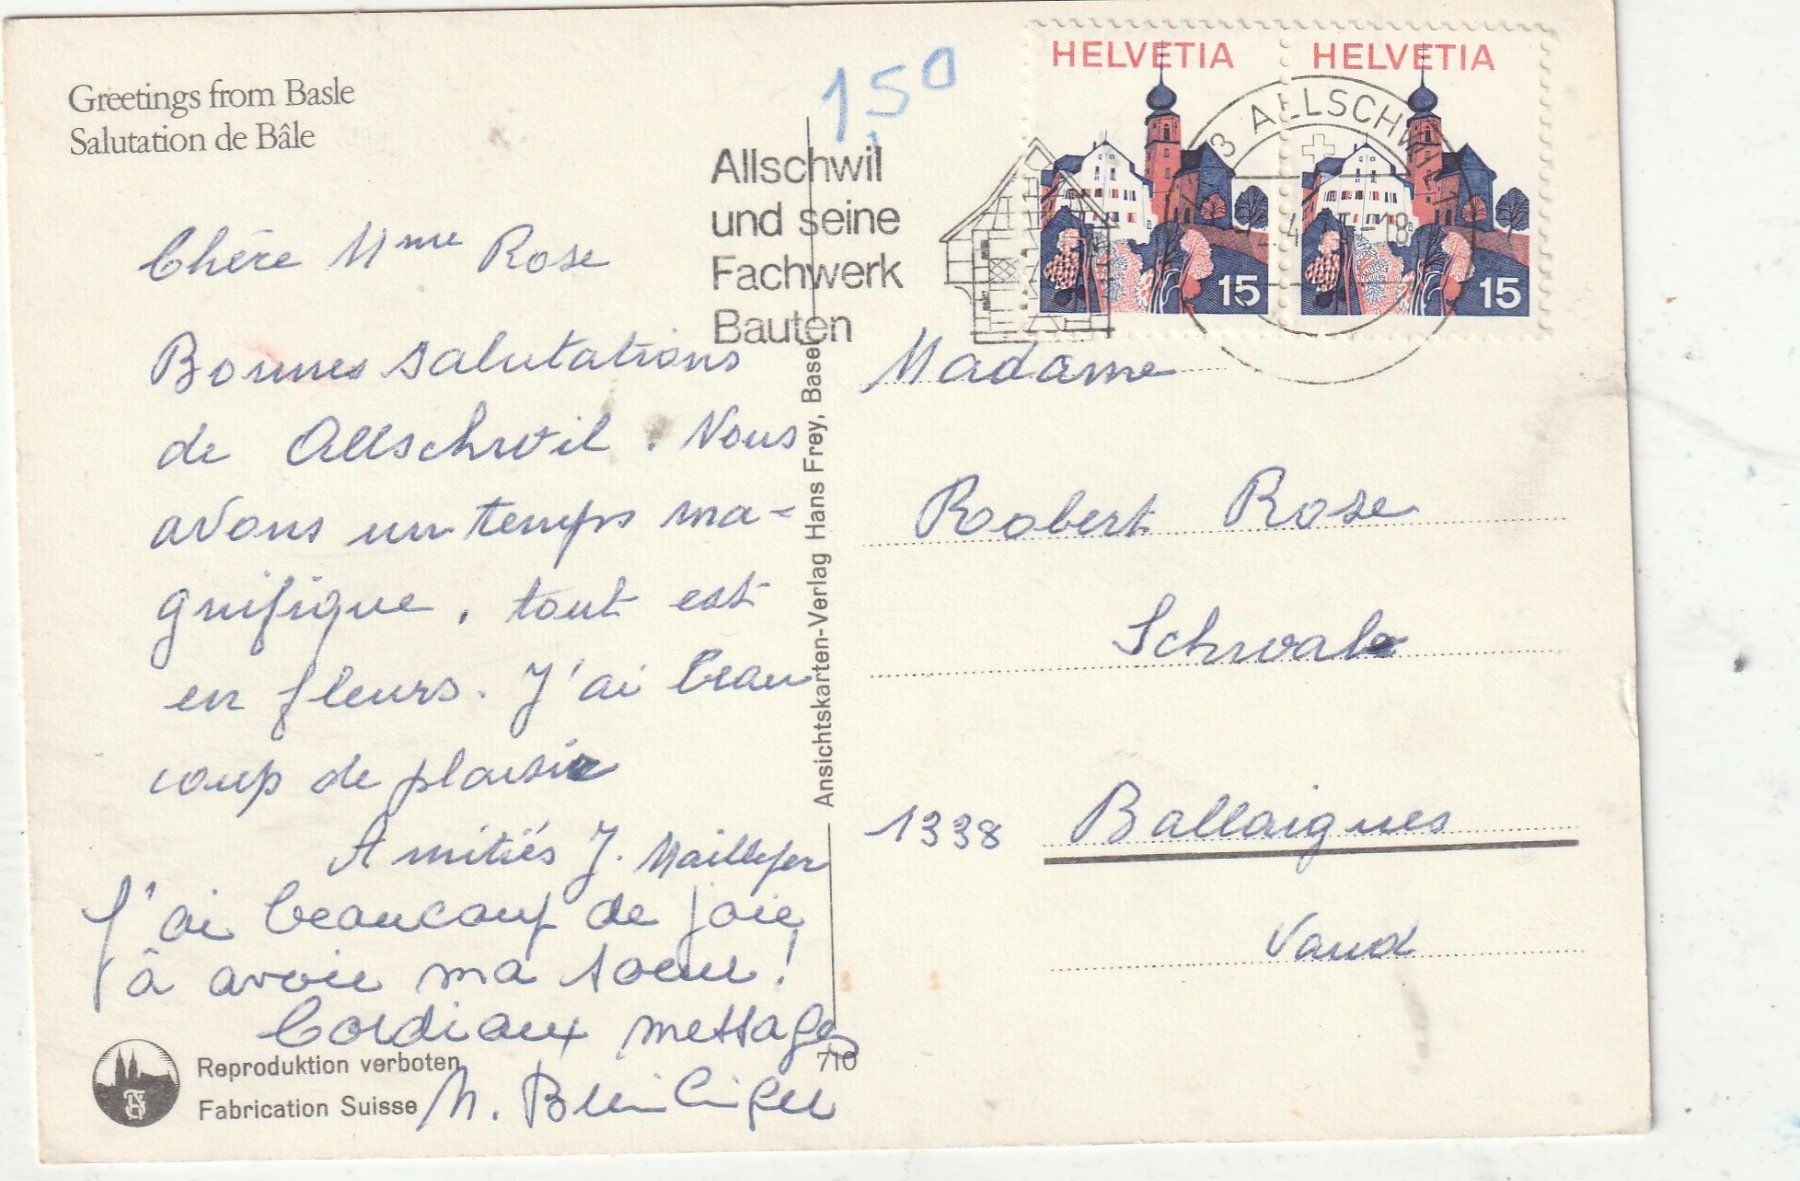 Greetings from Basle
Salutation de Bâle
1.50
Allschwil
und seine
Fachwerk
Bauten
HELVETIA
15
HELVETIA
15
3 ALLSCHWIL 1
Chère Mme Rose
Bonnes salutations
de Allschwil. Nous
avons un temps ma-
gnifique, tout est
en fleurs. J'ai beau
coup de plaisir
Amitiés J. Maillefer
J'ai beaucoup de joie
à avoir ma soeur!
Cordiaux messages
M.
Reproduktion verboten
Fabrication Suisse
710
Ansichtskarten-Verlag Hans Frey, Basel
Madame
Robert Rose
Schwab
1338 Ballaigues
Vaud